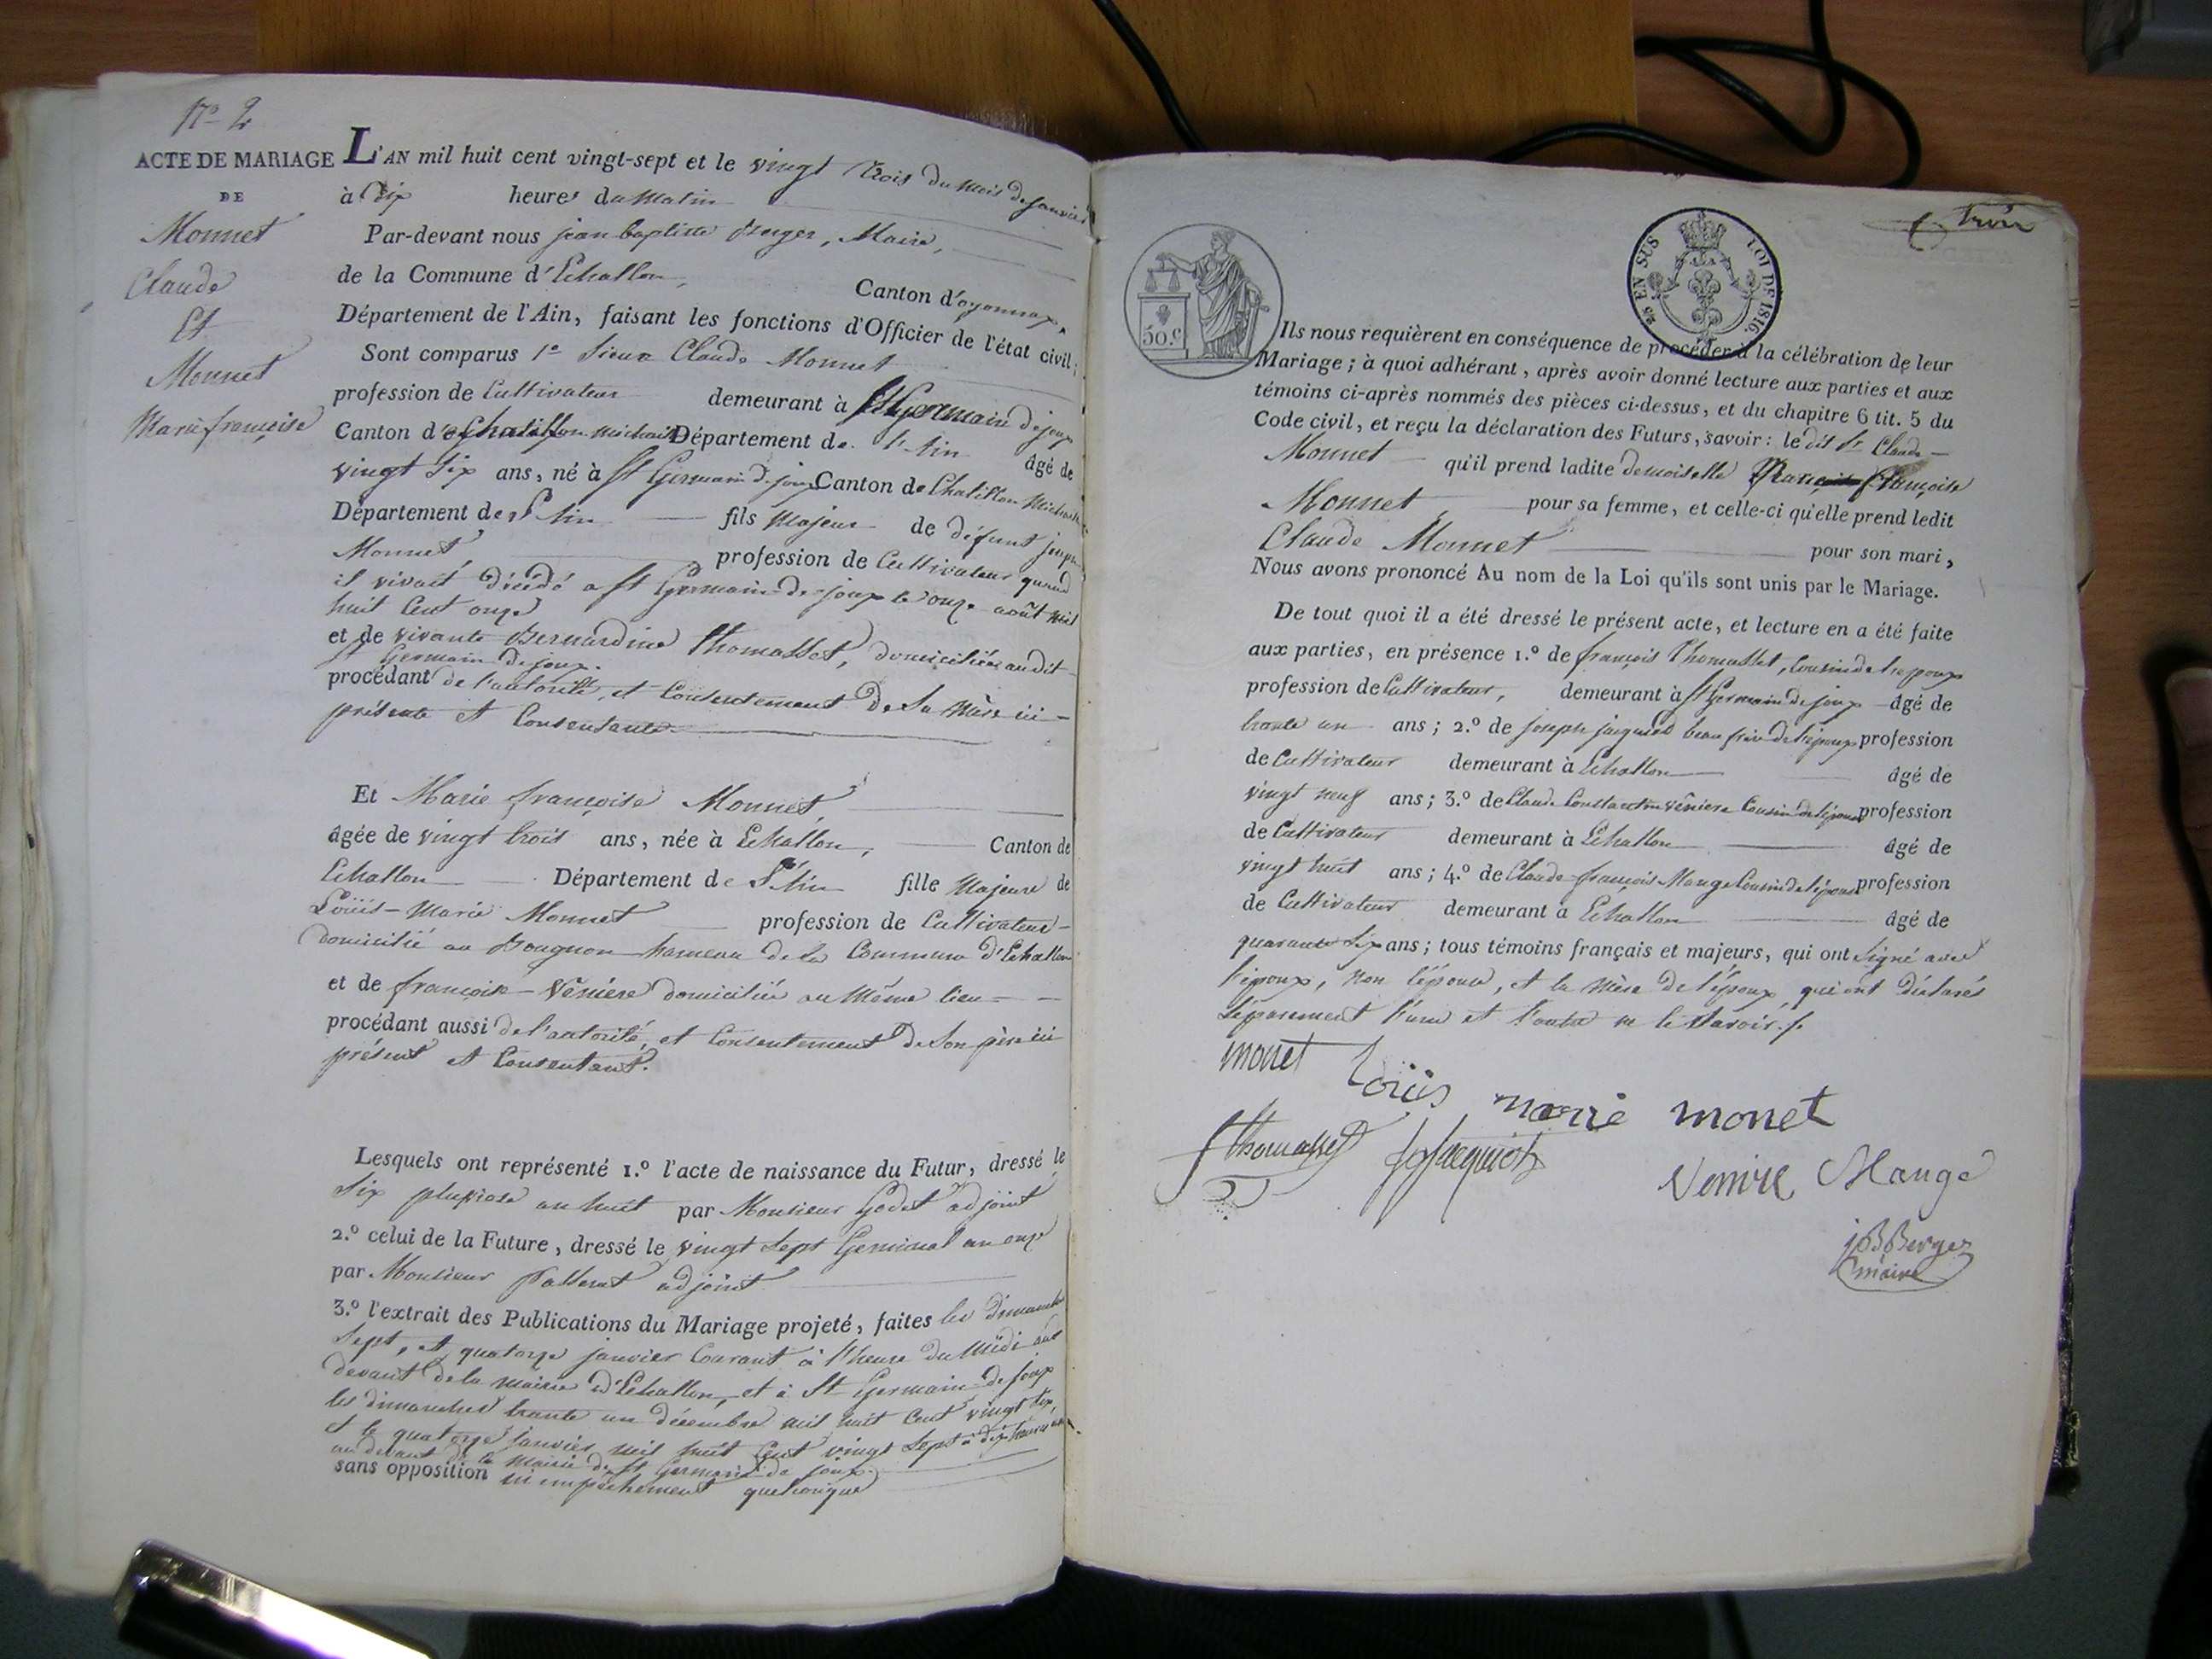 N.o 2
ACTE DE MARIAGE
DE
Monnet
Claude
Et
Monnet
Marie françoise
L'AN mil huit cent vingt-sept et le vingt trois du mois de janvier
à dix heures du matin
Par-devant nous jean baptiste Berger, Maire,
de la Commune d'Echallon, Canton d'oyonnax,
Département de l'Ain, faisant les fonctions d'Officier de l'état civil,
Sont comparus 1.o Sieur Claude Monnet
profession de Cultivateur demeurant à St Germain de joux
Canton de Chatillon michaille Département de l'Ain âgé de
vingt six ans, né à St Germain de joux Canton de Chatillon Michaille
Département de l'Ain fils Majeur de défunt joseph
Monnet, profession de Cultivateur quand
il vivait décédé a St Germain de joux le onze août mil
huit Cent onze
et de vivante Bernardine Thomasset, domiciliée audit
St Germain de joux.
procédant de l'autorité, et Consentement de Sa Mère ici
présente et Consentante
Et Marie françoise Monnet,
âgée de vingt trois ans, née à Echallon, Canton de
Echallon Département de l'Ain fille Majeure de
Loüis-Marie Monnet profession de Cultivateur
domicilié au Bougnon hameau de la Commune d'Echallon
et de françoise Vêniere domiciliée au Même lieu
procédant aussi de l'autorité, et Consentement de Son père ici
présent et Consentant.
Lesquels ont représenté 1.º l'acte de naissance du Futur, dressé le
Six pluviose an huit par Monsieur Godet adjoint
2.º celui de la Future, dressé le vingt Sept Germinal an onze
par Monsieur Passerat adjoint
3.º l'extrait des Publications du Mariage projeté, faites les dimanches
Sept, et quatorze janvier Courant à l'heure du Midi au
devant de la Mairie d'Echallon, et à St Germain de joux
les dimanches trente un décembre mil huit Cent vingt Six,
et le quatorze janvier mil huit Cent vingt Sept à dix heures
au devant de la Mairie de St Germain de joux
sans opposition ni empêchement quelconque
50.c
25 EN SUS LOI DE 1816.
trois
Ils nous requièrent en conséquence de procéder à la célébration de leur
Mariage ; à quoi adhérant, après avoir donné lecture aux parties et aux
témoins ci-après nommés des pièces ci-dessus, et du chapitre 6 tit. 5 du
Code civil, et reçu la déclaration des Futurs, savoir : le dit Sr Claude
Monnet qu'il prend ladite demoiselle françoise
Monnet pour sa femme, et celle-ci qu'elle prend ledit
Claude Monnet pour son mari,
Nous avons prononcé Au nom de la Loi qu'ils sont unis par le Mariage.
De tout quoi il a été dressé le présent acte, et lecture en a été faite
aux parties, en présence 1.º de françois Thomasset, Cousin de l'epoux
profession de Cultivateur, demeurant à St Germain de joux âgé de
trente un ans ; 2.º de joseph jacquiot beau frère de l'époux profession
de Cultivateur demeurant à Echallon âgé de
vingt neuf ans ; 3.º de Claude Constantin Vêniere Cousin de l'épouse profession
de Cultivateur demeurant à Echallon âgé de
vingt huit ans ; 4.º de Claude françois Mange Cousin de l'épouse profession
de Cultivateur demeurant à Echallon âgé de
quarante Six ans ; tous témoins français et majeurs, qui ont Signé avec
l'époux, non l'épouse, et la Mère de l'époux, qui ont déclarés
Séparement l'une et l'autre ne le Savoir.
monet Loüis marie monet
f thomasset j jacquiot
Venire Mange
jB Berger
maire